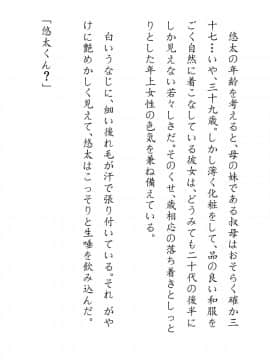 悠太の年齢を考えると、母の妹である叔母はおそらく確か三
十七…いや、三十九歳。しかし薄く化粧をして、品の良い和服を
ごく自然に着こなしている彼女は、どうみても二十代の後半に
しか見えない若々しさだ。そのくせ、歳相応の落ち着きとしっと
りとした年上女性の色気を兼ね備えている。
白いうなじに、細い後れ毛が汗で張り付いている。それ がや
けに艶めかしく見えて、悠太はこっそりと生唾を飲み込んだ。
「悠太くん?」